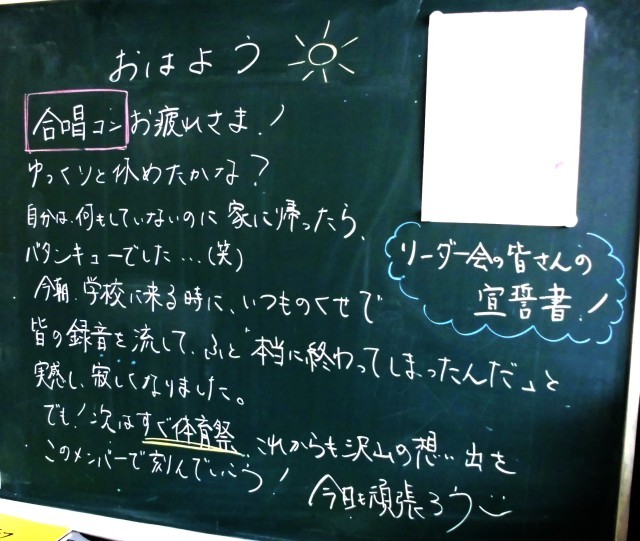 おはよう
合唱コン お疲れさま!
ゆっくりと休めたかな?
自分は、何もしていないのに 家に帰ったら、
バタンキューでした…(笑)
今朝、学校に来る時に、いつものくせで
皆の録音を流して、ふと「本当に終わってしまったんだ」と
実感し、寂しくなりました。
でも!次はすぐ体育祭、これからも沢山の想い出を
このメンバーで刻んでいこう!
今日も頑張ろう
リーダー会の皆さんの
宣誓書!